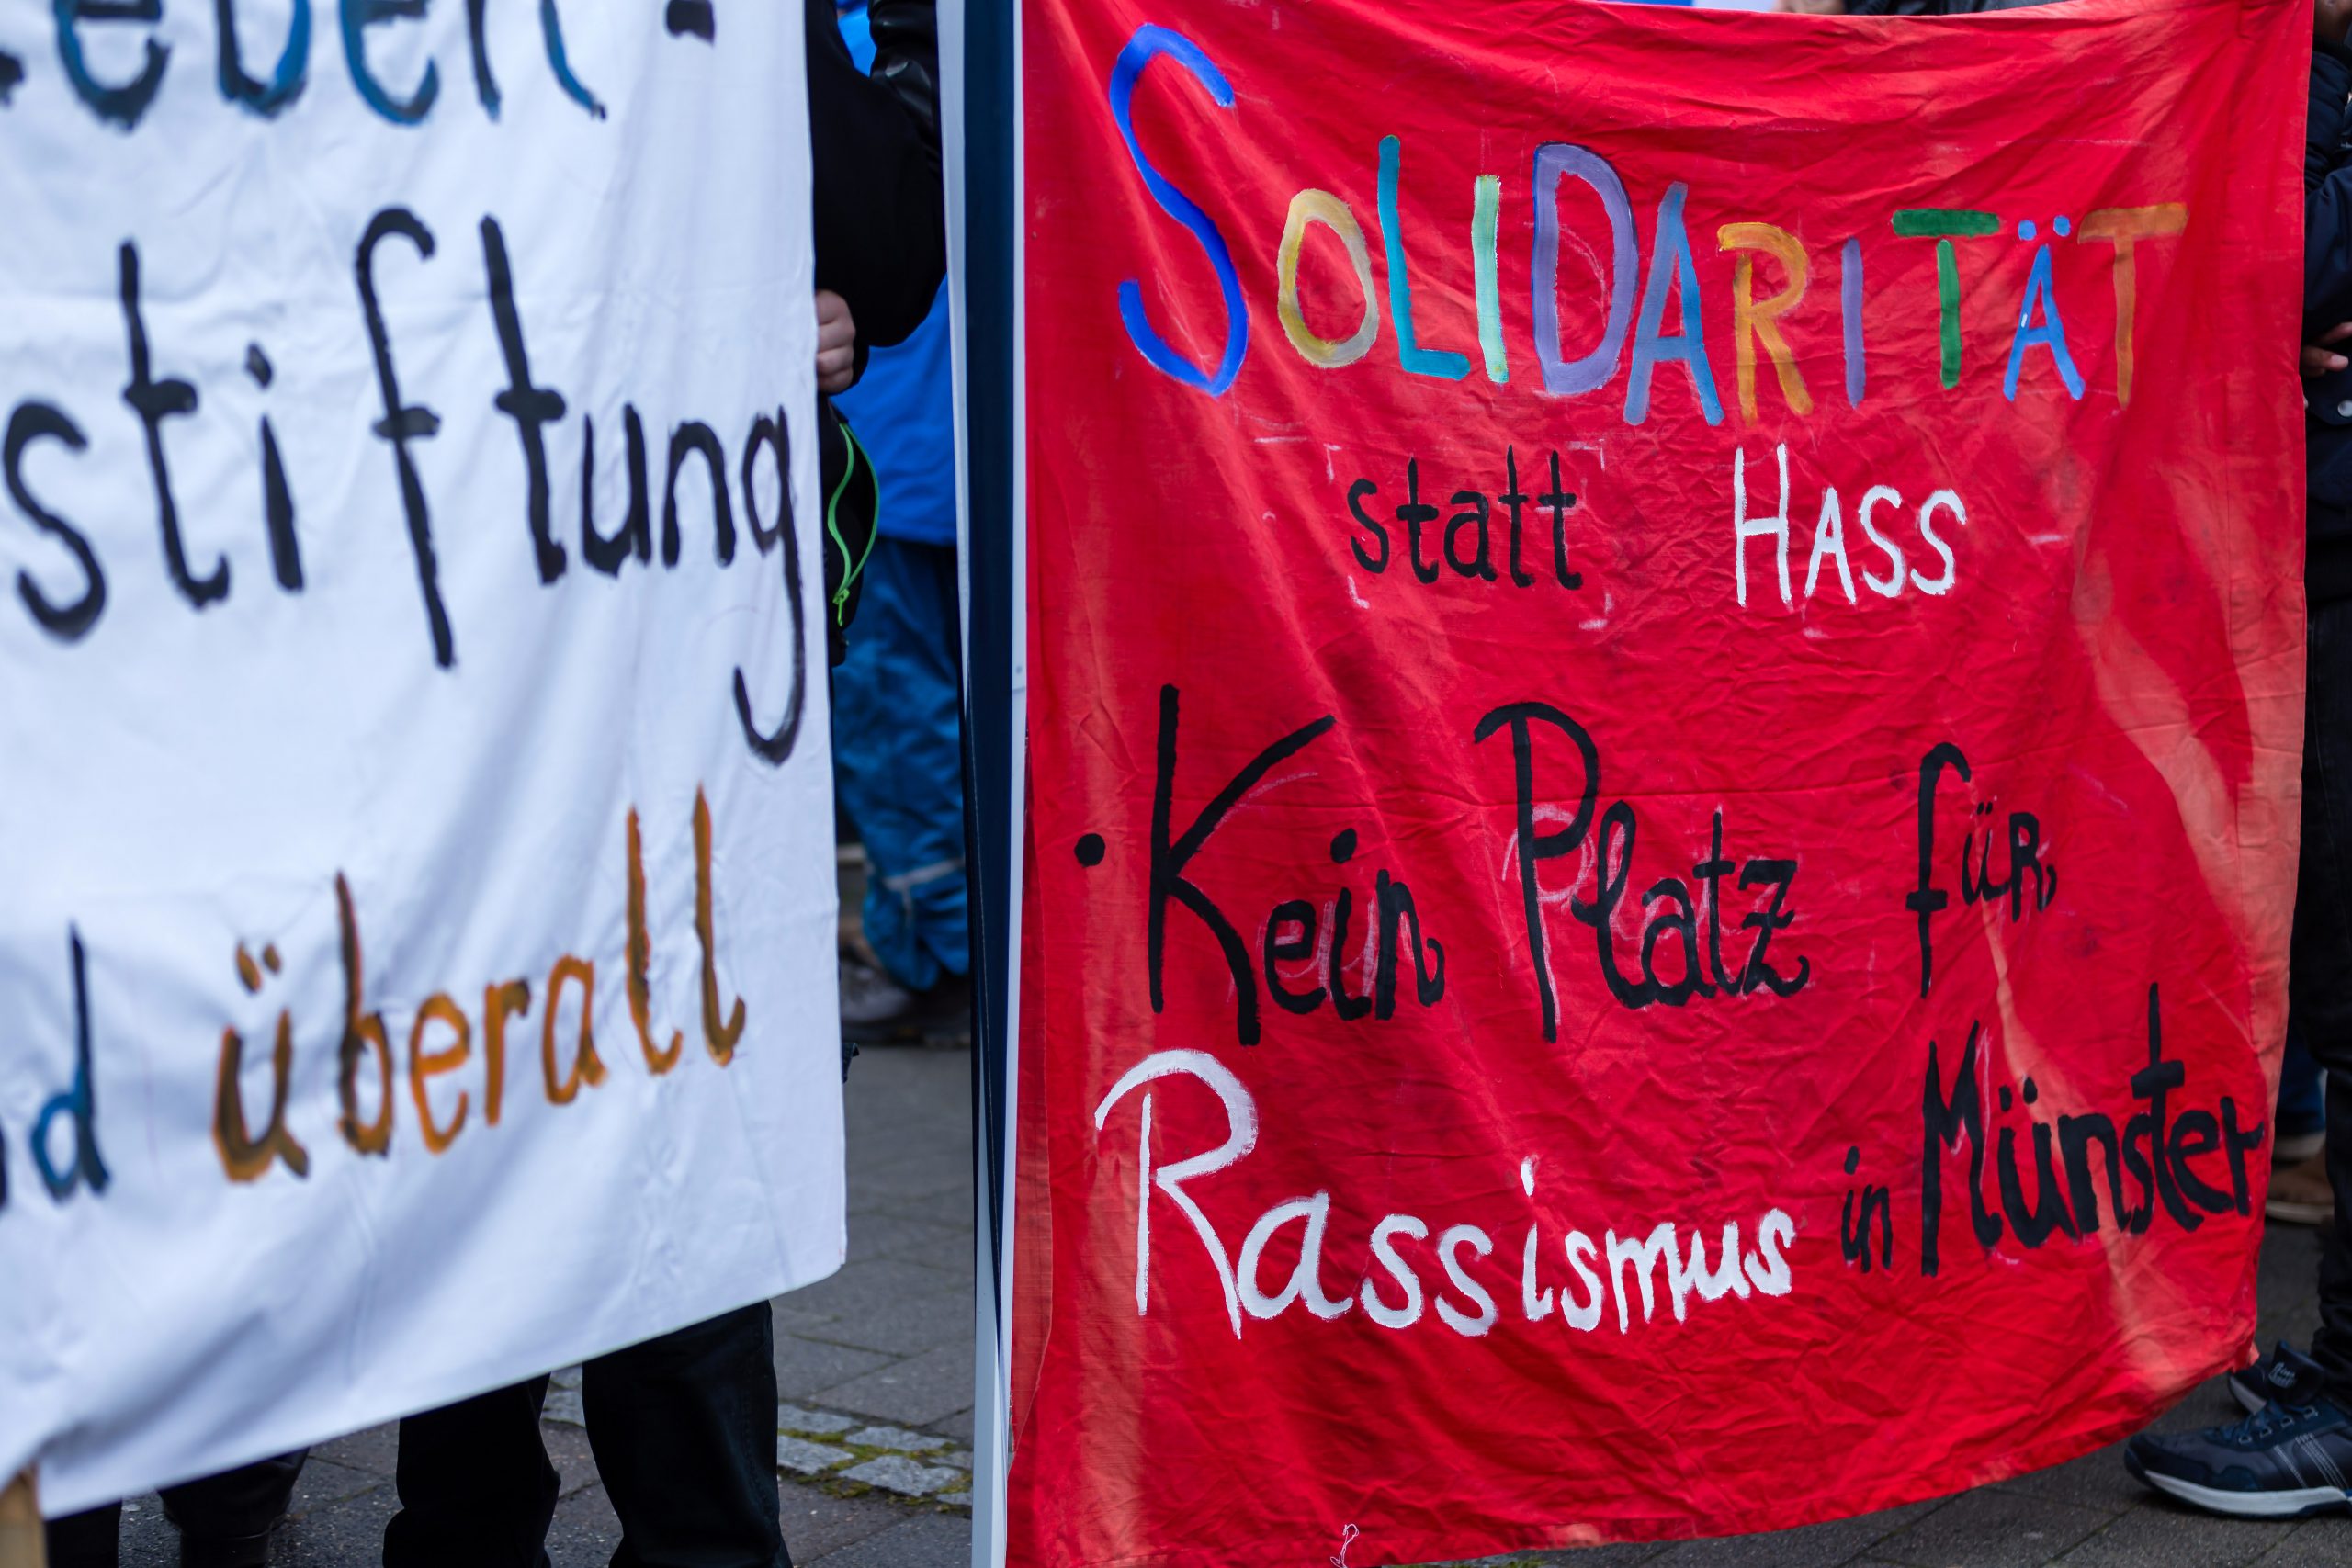 stiftung
überall
SOLIDARITÄT
statt HASS
• Kein Platz für
Rassismus in Münster